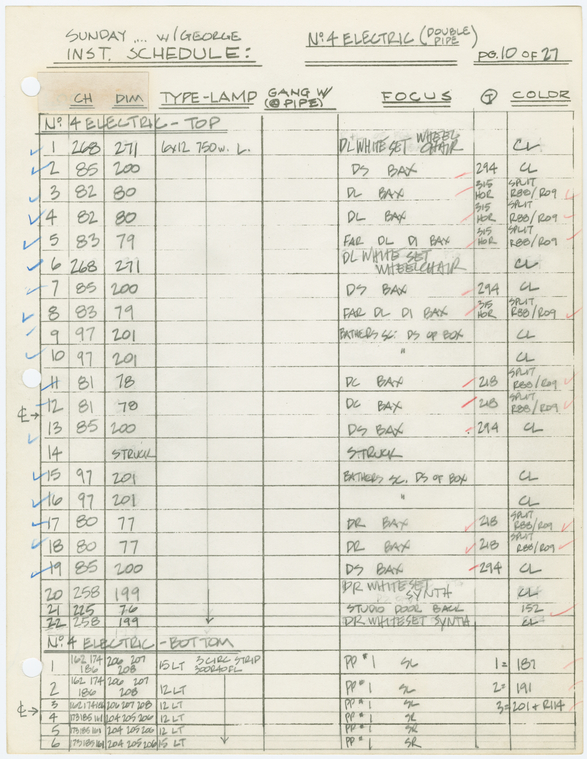 SUNDAY ... W/GEORGE
INST. SCHEDULE:
Nº4 ELECTRIC (DOUBLE PIPE)
PG. 10 OF 27
CH DIM TYPE-LAMP GANG W/ (@ PIPE) FOCUS T COLOR
Nº 4 ELECTRIC - TOP
1 268 271 6x12 750w. L. DL WHITE SET WHEEL CHAIR CL
2 85 200 DS BAX 294 CL
3 82 80 DL BAX 315 HOR SPLIT R88/R09
4 82 80 DL BAX 315 HOR SPLIT R88/R09
5 83 79 FAR DL DI BAX 315 HOR SPLIT R88/R09
6 268 271 DL WHITE SET WHEELCHAIR CL
7 85 200 DS BAX 294 CL
8 83 79 FAR DL DI BAX 315 HOR SPLIT R88/R09
9 97 201 BATHERS SC. DS OF BOX CL
10 97 201 " CL
11 81 78 DC BAX 218 SPLIT R88/R09
CL 12 81 78 DC BAX 218 SPLIT R88/R09
13 85 200 DS BAX 294 CL
14 STRUCK STRUCK
15 97 201 BATHERS SC. DS OF BOX CL
16 97 201 " CL
17 80 77 DR BAX 218 SPLIT R88/R09
18 80 77 DR BAX 218 SPLIT R88/R09
19 85 200 DS BAX 294 CL
20 258 199 DR WHITE SET SYNTH CL
21 225 76 STUDIO DOOR BACK 152
22 258 199 DR WHITE SET SYNTH CL
Nº 4 ELECTRIC - BOTTOM
1 162 174 186 206 207 208 15 LT 3 CIRC STRIP PP #1 SL 1 = 187
2 162 174 186 206 207 208 12 LT PP #1 SL 2 = 191
CL 3 162 174 186 206 207 208 12 LT PP #1 SL 3 = 201 + R114
4 173 185 161 204 205 206 12 LT PP #1 SR
5 173 185 161 204 205 206 12 LT PP #1 SR
6 173 185 161 204 205 206 15 LT PP #1 SR